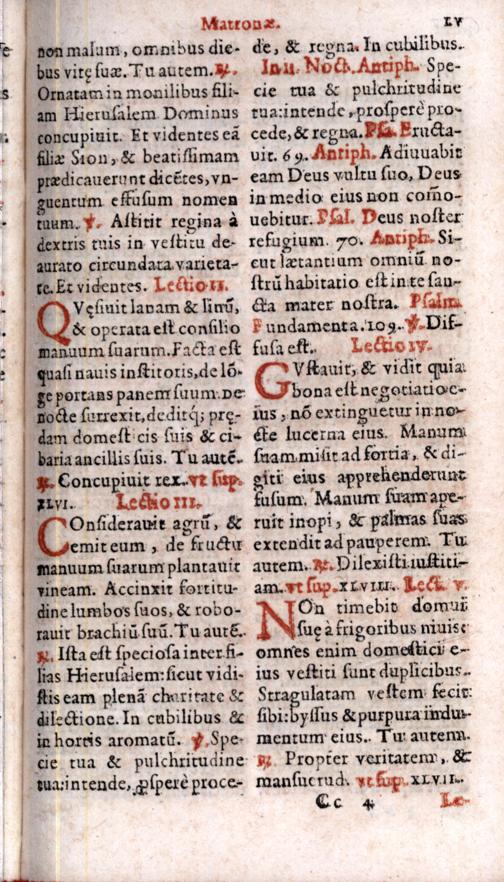 Matronæ.
LV
non malum, omnibus die-
bus vitę suæ. Tu autem. ℟.
Ornatam in monilibus fili-
am Hierusalem Dominus
concupiuit. Et videntes eā
filiæ Sion, & beatissimam
prædicauerunt dicētes, vn-
guentum effusum nomen
tuum. ℣. Astitit regina à
dextris tuis in vestitu de-
aurato circundata varieta-
te. Et videntes. Lectio II.
QVęsiuit lanam & linū,
& operata est consilio
manuum suarum. Facta est
quasi nauis institoris, de lō-
ge portans panem suum. De
nocte surrexit, deditq; prę-
dam domesticis suis & ci-
baria ancillis suis. Tu autē.
℟. Concupiuit rex. vt sup.
XLVI. Lectio III.
COnsiderauit agrū, &
emit eum, de fructu
manuum suarum plantauit
vineam. Accinxit fortitu-
dine lumbos suos, & robo-
rauit brachiū suū. Tu autē.
℟. Ista est speciosa inter fi-
lias Hierusalem: sicut vidi-
stis eam plenā charitate &
dilectione. In cubilibus &
in hortis aromatū. ℣. Spe-
cie tua & pulchritudine
tua: intende, ꝓsperè proce-
de, & regna. In cubilibus.
In II. Noct. Antiph. Spe-
cie tua & pulchritudine
tua: intende, prosperè pro-
cede, & regna. Psa. Eructa-
uit. 69. Antiph. Adiuuabit
eam Deus vultu suo, Deus
in medio eius non cōmo-
uebitur. Psal. Deus noster
refugium. 70. Antiph. Si-
cut lætantium omniū no-
strū habitatio est in te san-
cta mater nostra. Psalm.
Fundamenta. 109. ℣. Dif-
fusa est. Lectio IV.
GVstauit, & vidit quia
bona est negotiatio e-
ius, nō extinguetur in no-
cte lucerna eius. Manum
suam misit ad fortia, & di-
giti eius apprehenderunt
fusum. Manum suam ape-
ruit inopi, & palmas suas
extendit ad pauperem. Tu
autem. ℟. Dilexisti iustiti-
am. vt sup. XLVIII. Lect. V.
NOn timebit domui
suę à frigoribus niuis:
omnes enim domestici e-
ius vestiti sunt duplicibus.
Stragulatam vestem fecit
sibi: byssus & purpura indu-
mentum eius. Tu autem.
℟. Propter veritatem, &
mansuetud. vt sup. XLVII.
Cc 4
Le-